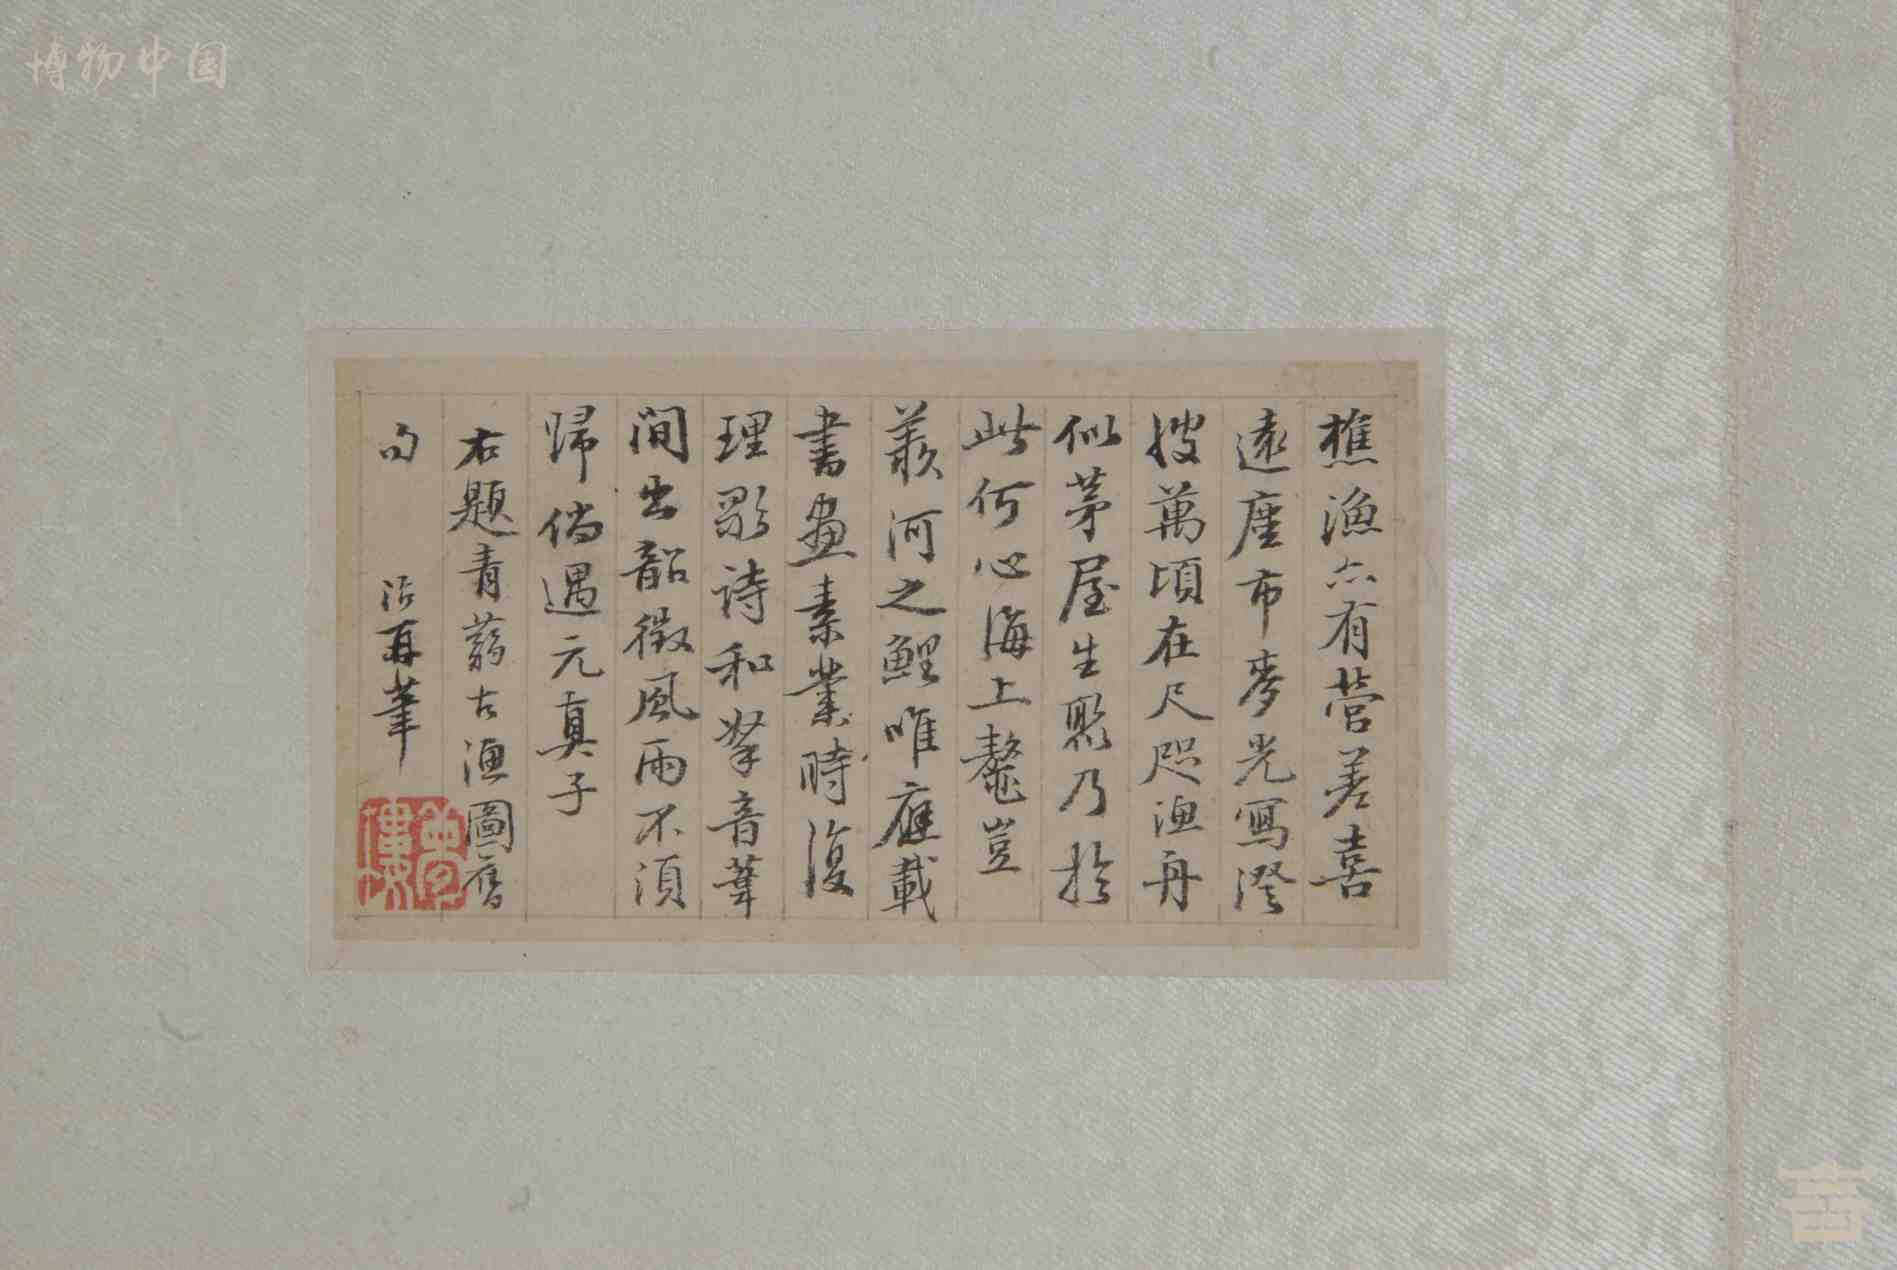 博物中国
樵漁亦有營差喜
遠塵市麥光寫澄
搜萬頃在尺咫漁舟
似茅屋生聚乃於
此何心海上鼇豈
羨河之鯉唯應載
書畫素業時復
理歌詩和拏音葦
間出韶微風雨不須
歸倘遇元真子
右題青蒻古漁圖舊
句 治再筆